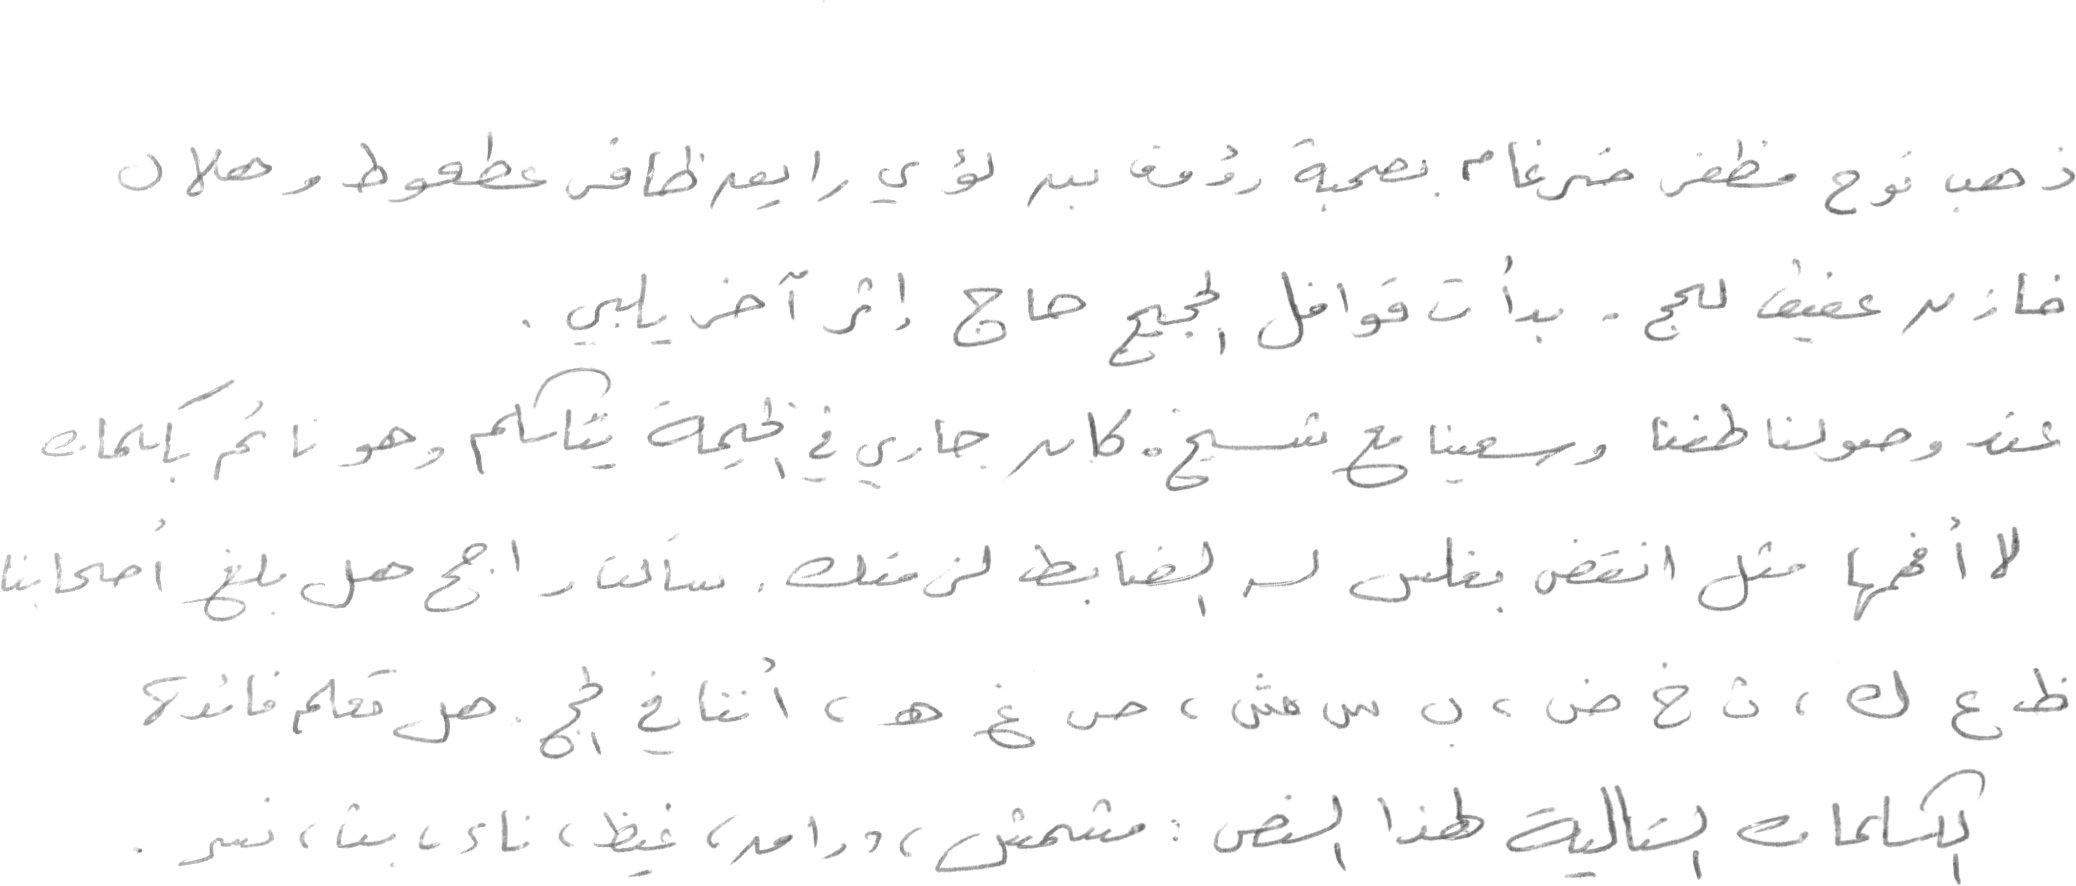 ذهب نوح مظفر ضرغام بصحبة رؤوف بن لؤي رايعن ظافر عطعوط و هلال
خازن عفيف للحج . بدأت قوافل الحجيج حاج إثر آخر يلبي .
عند وصولنا طفنا وسعينا مع شيخ . كان جاري في الخيمة يتكلم وهو نائم بكلمات
لا أفهمها مثل انقض بغلس لسن الضابط لئن منك . سألت راجح هل بلغ أصحابنا
ظ ع ك ، ث خ ض ، ب س ش ، ص غ هـ ، أننا في الحج . هل تعلم فائدة
الكلمات التالية لهذا النص : مشمش ، دراهد ، غيظ ، ناء ، بث ، نسر .